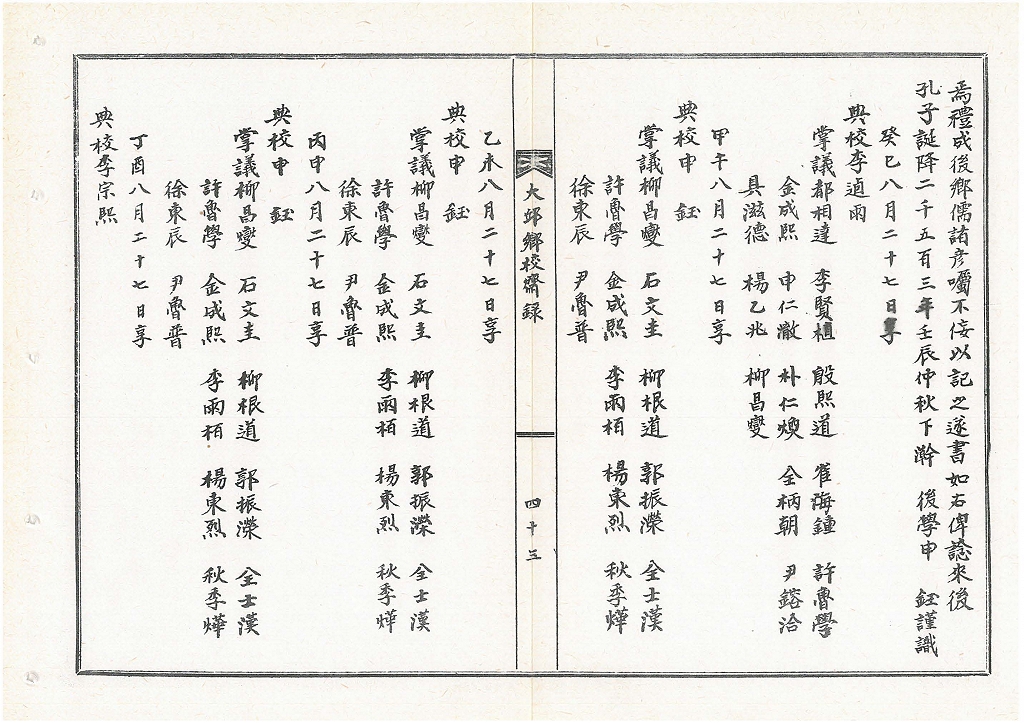 焉禮成後鄕儒諸彦囑不佞以記之遂書如右俾諗來後
孔子誕降二千五百三年壬辰仲秋下澣　後學申　鈺謹識
癸巳八月二十七日享
典校李迺雨
掌議都相達　李賢植　殷熙道　崔海鍾　許魯學
金成熙　申仁澈　朴仁煥　全柄朝　尹鎔洽
具滋德　楊乙兆　柳昌燮
甲午八月二十七日享
典校申　鈺
掌議柳昌燮　石文圭　柳根道　郭振濚　全士漢
許魯學　金成熙　李雨栢　楊東烈　秋季燁
徐東辰　尹魯普
大邱鄕校齋錄
四十三
乙未八月二十七日享
典校申　鈺
掌議柳昌燮　石文圭　柳根道　郭振濚　全士漢
許魯學　金成熙　李雨栢　楊東烈　秋季燁
徐東辰　尹魯普
丙申八月二十七日享
典校申　鈺
掌議柳昌燮　石文圭　柳根道　郭振濚　全士漢
許魯學　金成熙　李雨栢　楊東烈　秋季燁
徐東辰　尹魯普
丁酉八月二十七日享
典校李宗熙